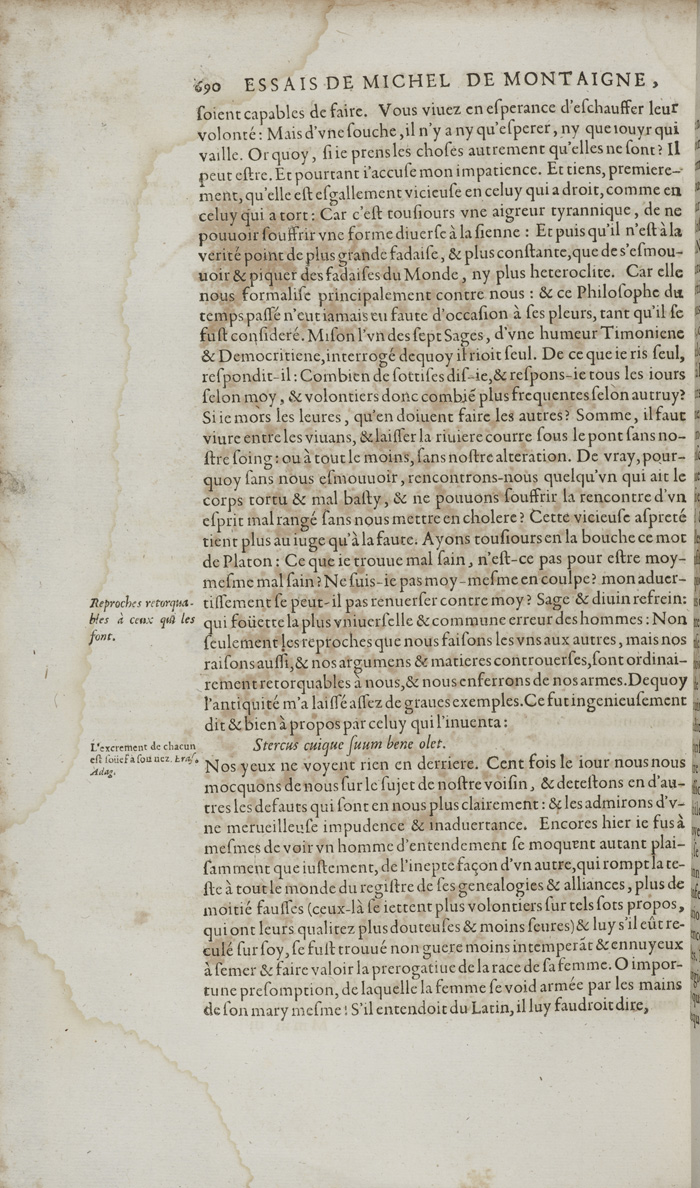 690 ESSAIS DE MICHEL DE MONTAIGNE,
ſoient capables de faire. Vous viuez en eſperance d'eſchauffer leur
volonté: Mais d'vne ſouche, il n'y a ny qu'eſperer, ny que iouyr qui
vaille. Or quoy, ſi ie prens les choſes autrement qu'elles ne ſont? Il
peut eſtre. Et pourtant i'accuſe mon impatience. Et tiens, premiere-
ment, qu'elle eſt eſgallement vicieuſe en celuy qui a droit, comme en
celuy qui a tort: Car c'eſt touſiours vne aigreur tyrannique, de ne
pouuoir ſouffrir vne forme diuerſe à la ſienne: Et puis qu'il n'eſt à la
verité point de plus grande fadaiſe, & plus conſtante, que de s'eſmou-
uoir & piquer des fadaiſes du Monde, ny plus heteroclite. Car elle
nous formaliſe principalement contre nous: & ce Philoſophe du
temps paſſé n'eut iamais eu faute d'occaſion à ſes pleurs, tant qu'il ſe
fuſt conſideré. Miſon l'vn des ſept Sages, d'vne humeur Timoniene
& Democritiene, interrogé dequoy il rioit ſeul. De ce que ie ris ſeul,
reſpondit-il: Combien de ſottiſes diſ-ie, & reſpons-ie tous les iours
ſelon moy, & volontiers donc combiẽ plus frequentes ſelon autruy?
Si ie mors les leures, qu'en doiuent faire les autres? Somme, il faut
viure entre les viuans, & laiſſer la riuiere courre ſous le pont ſans no-
ſtre ſoing: ou à tout le moins, ſans noſtre alteration. De vray, pour-
quoy ſans nous eſmouuoir, rencontrons-nous quelqu'vn qui ait le
corps tortu & mal baſty, & ne pouuons ſouffrir la rencontre d'vn
eſprit mal rangé ſans nous mettre en cholere? Cette vicieuſe aſpreté
tient plus au iuge qu'à la faute. Ayons touſiours en la bouche ce mot
de Platon: Ce que ie trouue mal ſain, n'eſt-ce pas pour eſtre moy-
meſme mal ſain? Ne ſuis-ie pas moy-meſme en coulpe? mon aduer-
Reproches retorqua-
bles à ceux qui les
font.
tiſſement ſe peut-il pas renuerſer contre moy? Sage & diuin refrein:
qui foüette la plus vniuerſelle & commune erreur des hommes: Non
ſeulement les reproches que nous faiſons les vns aux autres, mais nos
raiſons auſſi, & nos argumens & matieres controuerſes, ſont ordinai-
rement retorquables à nous, & nous enferrons de nos armes. Dequoy
l'antiquité m'a laiſſé aſſez de graues exemples. Ce fut ingenieuſement
dit & bien à propos par celuy qui l'inuenta:
L'excrement de chacun
eſt ſoüef à ſon nez. Eraſ.
Adag.
Stercus cuique ſuum bene olet.
Nos yeux ne voyent rien en derriere. Cent fois le iour nous nous
mocquons de nous ſur le ſujet de noſtre voiſin, & deteſtons en d'au-
tres les defauts qui ſont en nous plus clairement: & les admirons d'v-
ne merueilleuſe impudence & inaduertance. Encores hier ie fus à
meſmes de voir vn homme d'entendement ſe moquent autant plai-
ſamment que iuſtement, de l'inepte façon d'vn autre, qui rompt la te-
ſte à tout le monde du regiſtre de ſes genealogies & alliances, plus de
moitié fauſſes (ceux-là ſe iettent plus volontiers ſur tels ſots propos,
qui ont leurs qualitez plus douteuſes & moins ſeures) & luy s'il eût re-
culé ſur ſoy, ſe fuſt trouué non guere moins intemperãt & ennuyeux
à ſemer & faire valoir la prerogatiue de la race de ſa femme. O impor-
tune preſomption, de laquelle la femme ſe void armée par les mains
de ſon mary meſme! S'il entendoit du Latin, il luy faudroit dire,